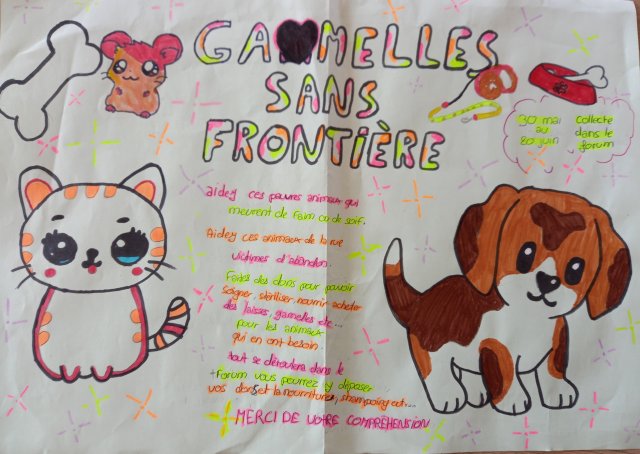 GAMELLES
SANS
FRONTIÈRE
30 mai
au
20 juin
collecte
dans le
forum
aidez ces pauvres animaux qui
meurent de faim ou de soif.
Aidez ces animaux de la rue
victimes d'abandon..
Faites des dons pour pouvoir
soigner, stériliser, nourrir acheter
des laisses, gamelles etc...
pour les animaux
qui en ont besoin.
tout se déroulera dans le
forum vous pourrez y déposer
vos dons et la nourriture, shampoing ect...
MERCI DE VOTRE COMPRÉHENSION